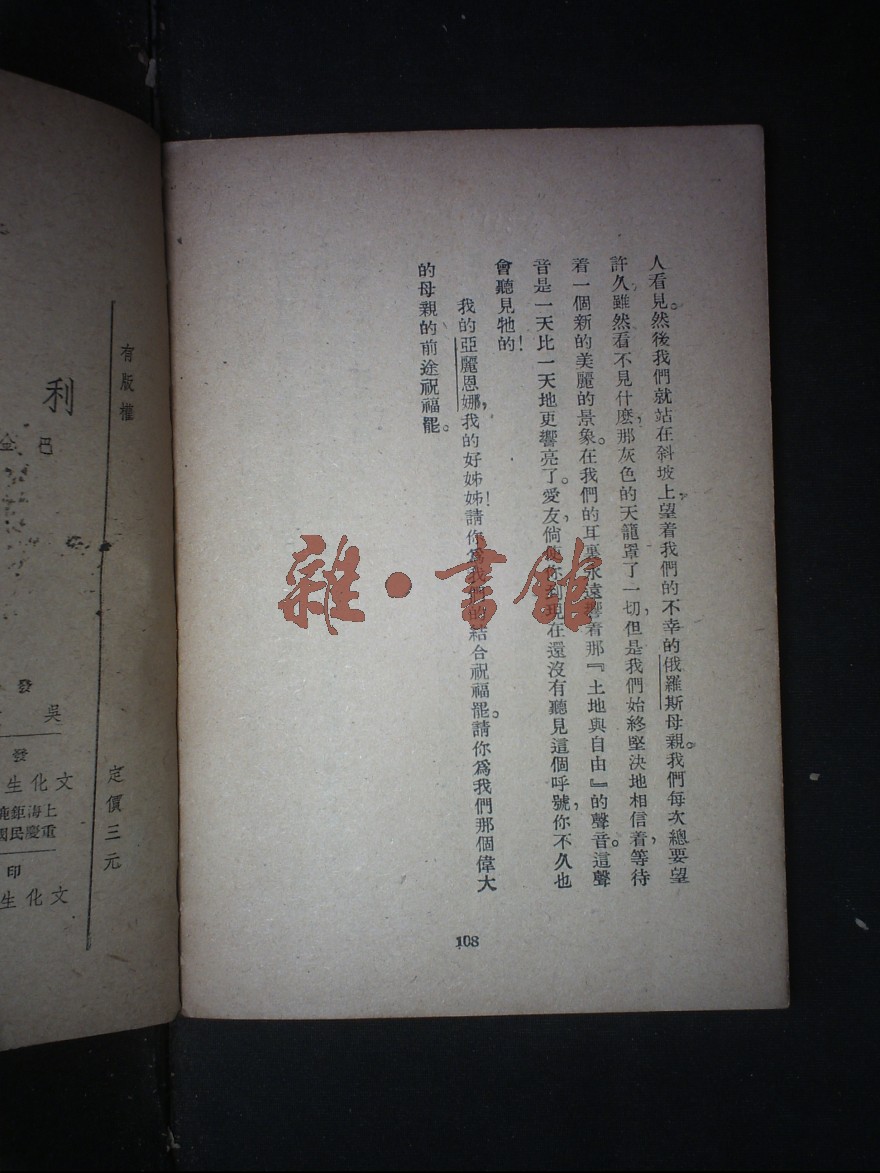 人看見。然後我們就站在斜坡上，望着我們的不幸的俄羅斯母親。我們每次總要望
許久，雖然看不見什麽，那灰色的天籠罩了一切，但是我們始終堅決地相信着，等待
着一個新的美麗的景象。在我們的耳裏永遠響着那『土地與自由』的聲音。這聲
音是一天比一天地更響亮了。愛友，倘使你到現在還沒有聽見這個呼號，你不久也
會聽見牠的！
我的亞麗恩娜，我的好姊姊！請你爲我們的結合祝福罷。請你爲我們那個偉大
的母親的前途祝福罷。
108
雜·書館
有版權
利
巴金
發
吳
發
文化生
上海鉅鹿
重慶民國
印
文化生
定價三元